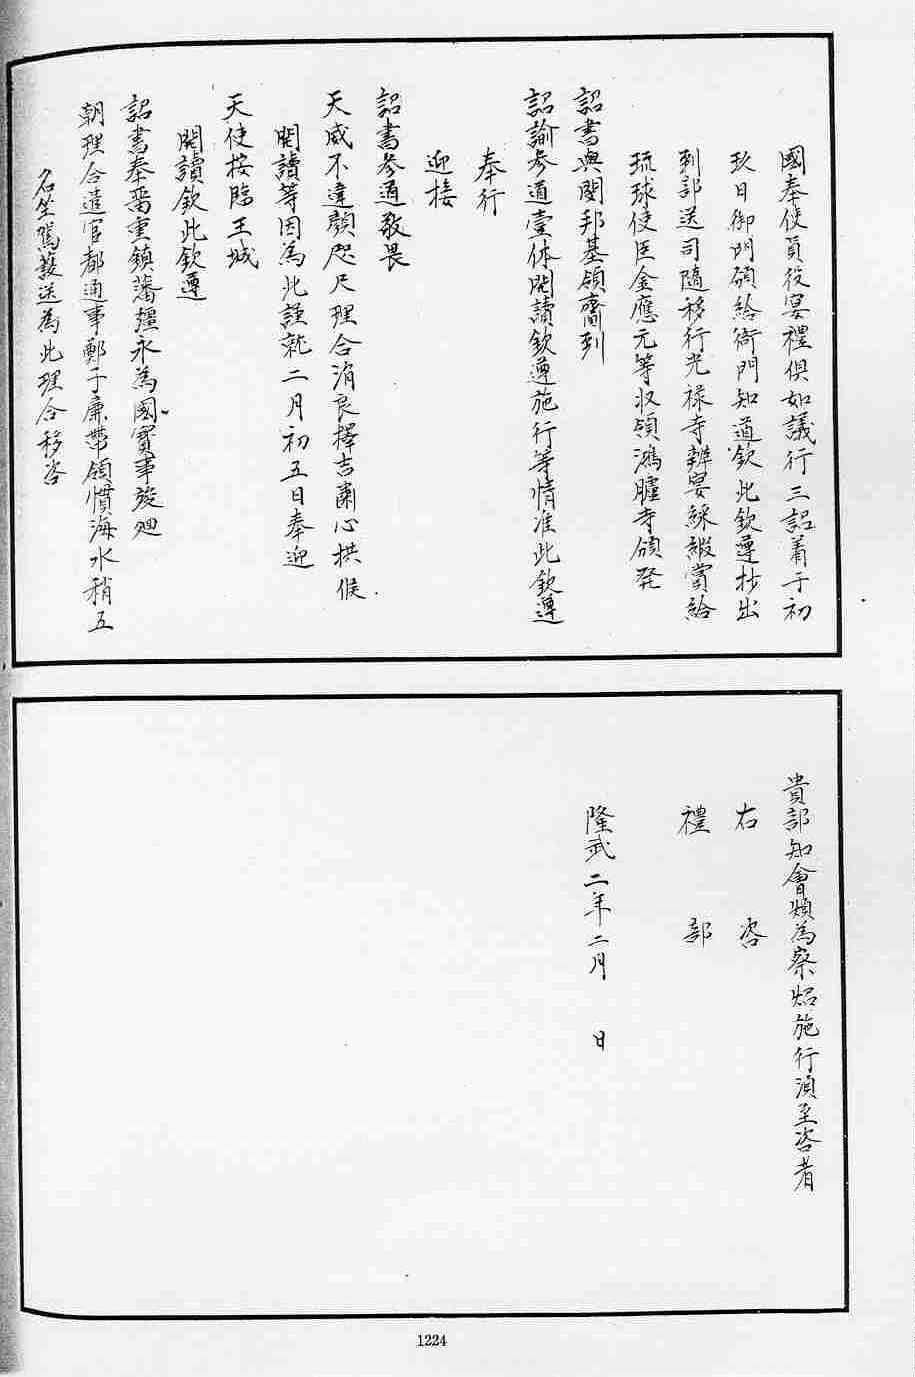 國奉使員役宴禮俱如議行三詔着于初
玖日御門頒給衙門知道欽此欽遵抄出
到部送司隨移行光祿寺辦宴綵緞賞給
琉球使臣金應元等收領鴻臚寺頒発
詔書與閩邦基領齎到
詔諭參道壹体開讀欽遵施行等情准此欽遵
奉行
迎接
詔書參通敬畏
天威不違顏咫尺理合涓良擇吉肅心拱候
開讀等因為此謹就二月初五日奉迎
天使按臨王城
開讀欽此欽遵
詔書奉畱重鎮藩疆永為國寶事竣廻
朝理合遣官都通事鄭子廉帶領慣海水稍五
名坐駕護送為此理合移咨
貴部知會煩為察炤施行湏至咨者
右咨
禮部
隆武二年二月 日
1224